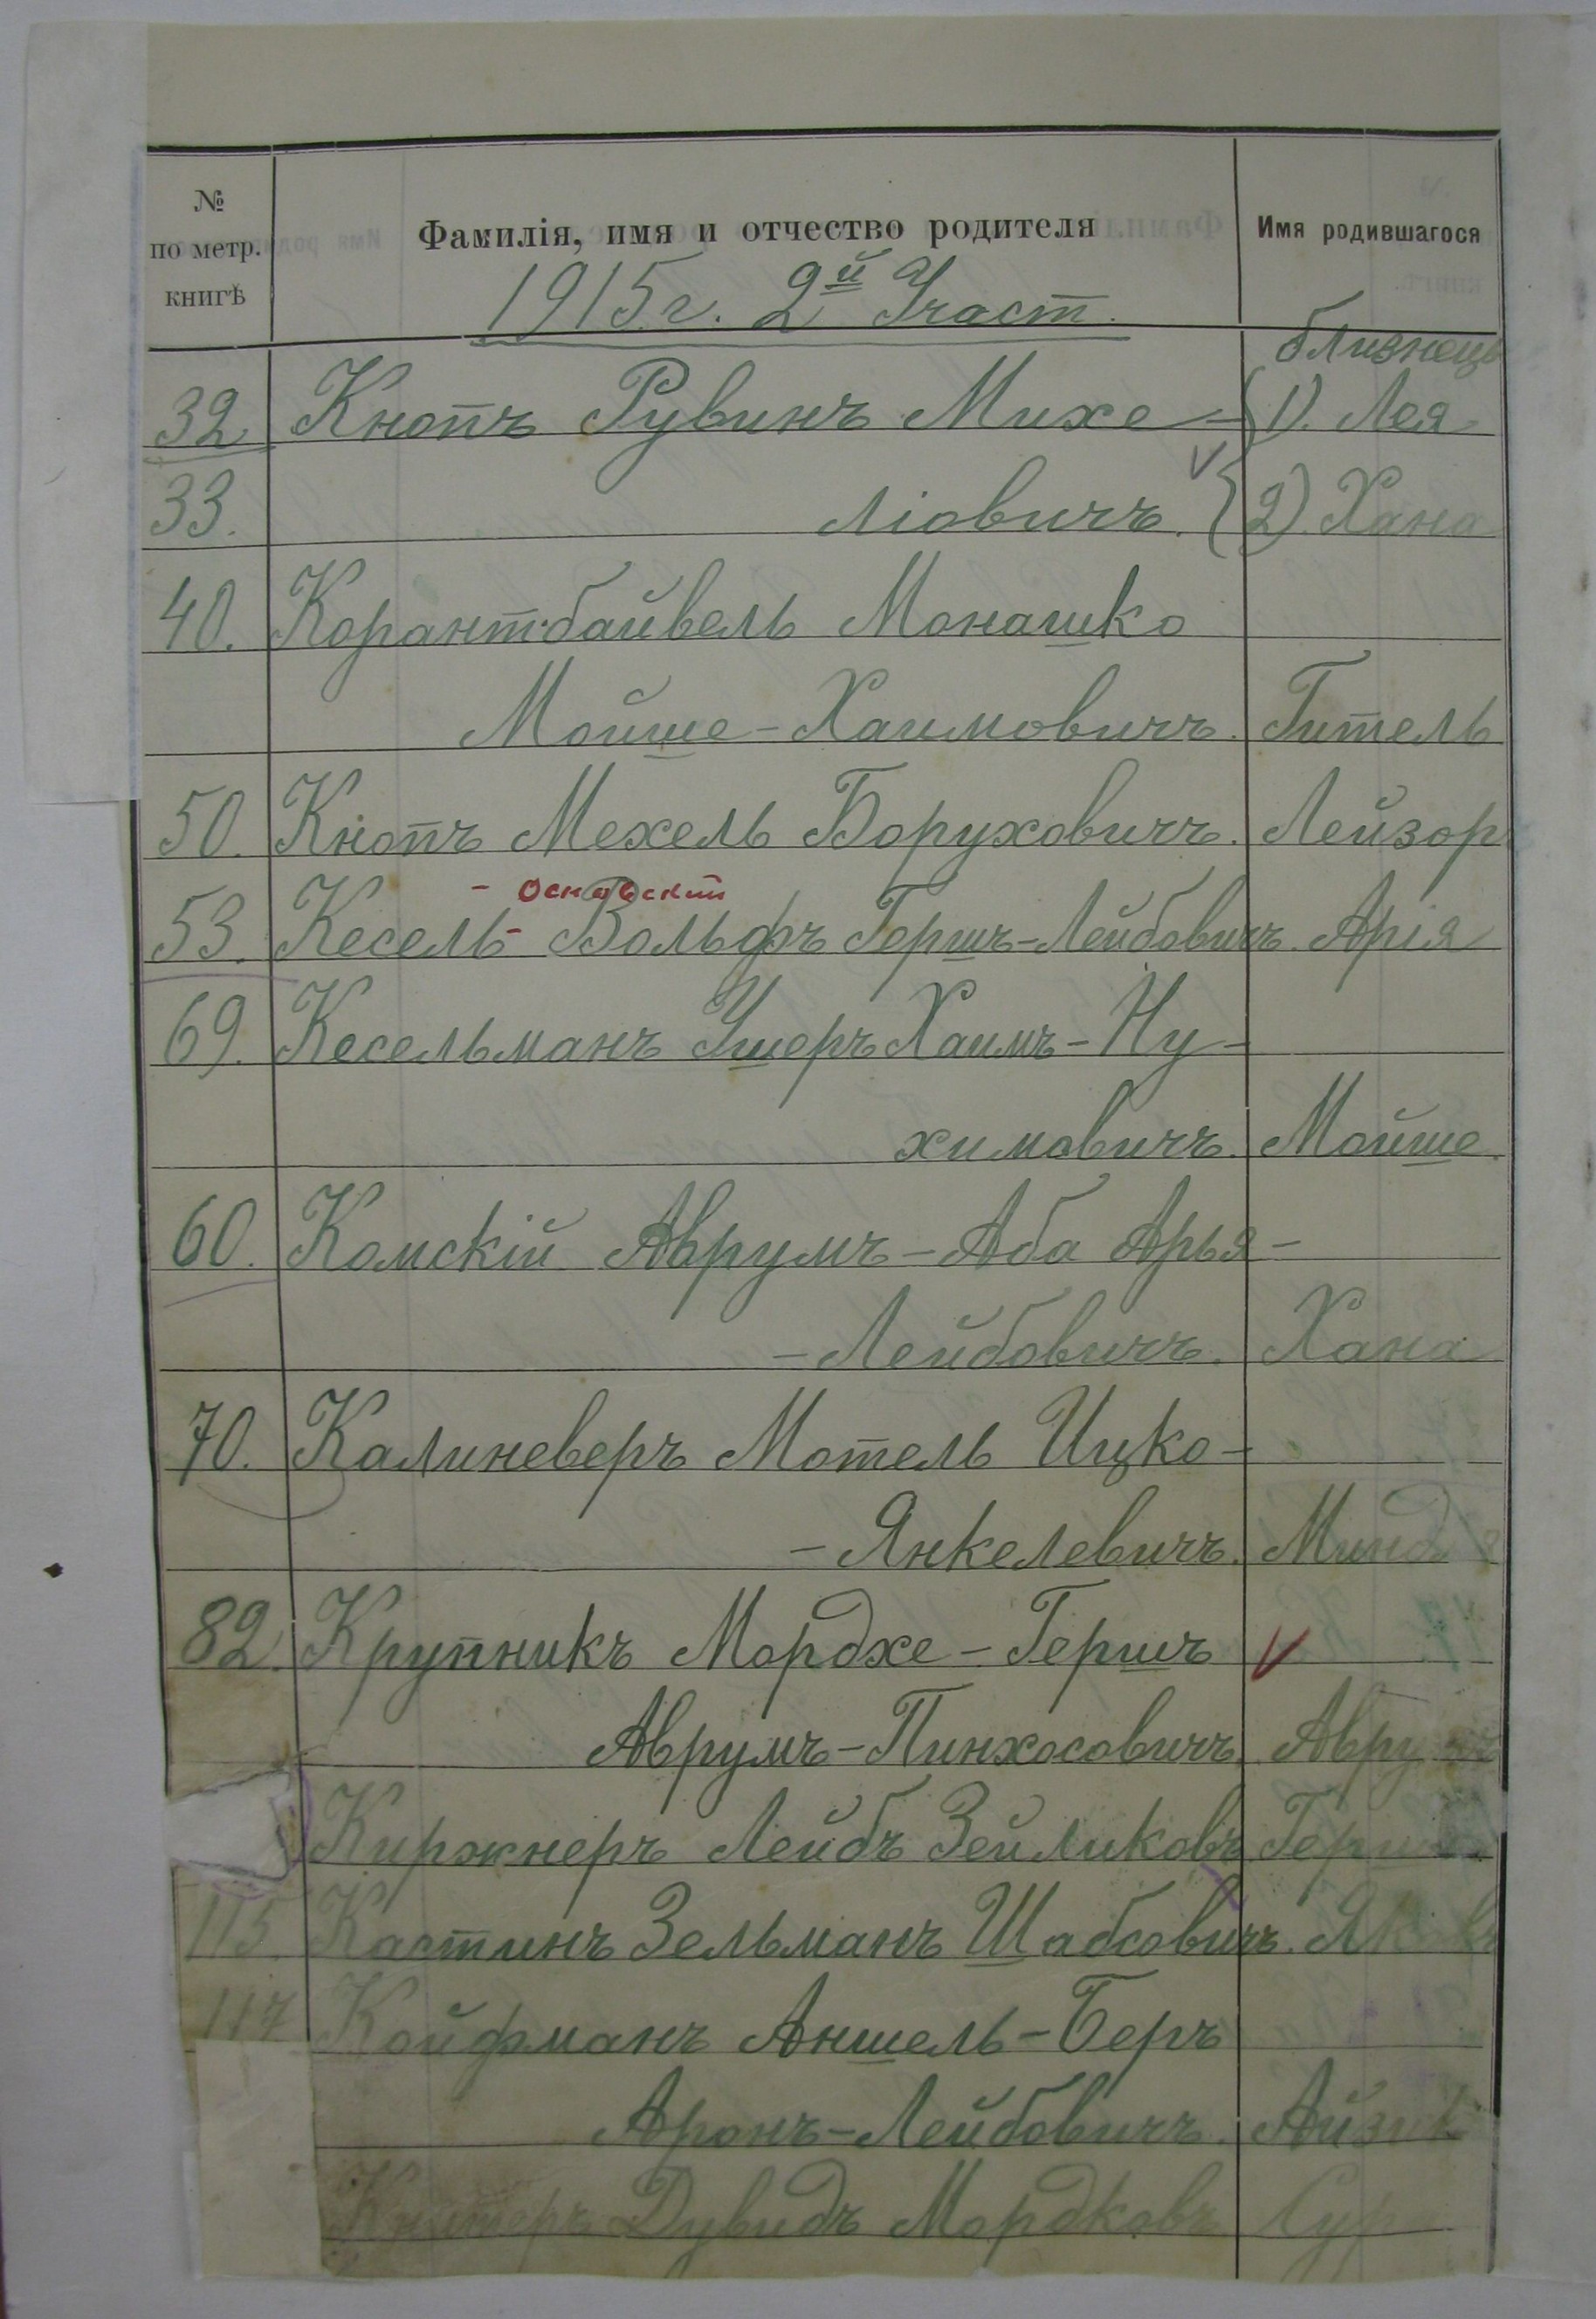 № по метр. книгѣ
Фамилія, имя и отчество родителя
Имя родившагося
1915 г. 2й Участ.
близнецы
32 Кнопъ Рувинъ Михе- 1). Лея
33. ліовичъ. 2) Хана
40. Корантбайвель Монашко
Мойше-Хаимовичъ. Гитель
50. Кнопъ Мехель Боруховичъ. Лейзор
- Осно́вский
53. Кесель- Вольфъ Гершъ-Лейбовичъ. Арія
69. Кесельманъ Ушеръ Хаимъ-Ну-
химовичъ. Мойше.
60. Комскій Аврумъ-Аба Арья-
-Лейбовичъ. Хана
70. Калиневеръ Мотель Ицко-
-Янкелевичъ.
82. Крупникъ Мордхе-Гершъ
Аврумъ-Пинхосовичъ. Аврумъ
Киржнеръ Лейбъ Зейликовъ Герш
115. Кастинъ Зельманъ Шабсовичъ.
117 Койфманъ Аншель-Беръ
Аронъ-Лейбовичъ. Айзик
Дувидъ Мордковъ Сура